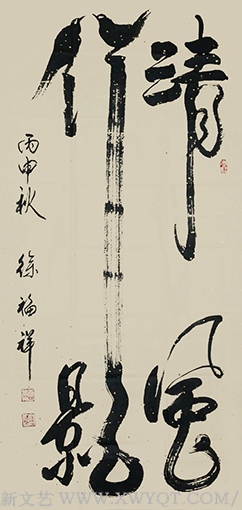 清風
竹影
丙申秋 徐福祥
新文艺 WWW.XWYQT.COM/